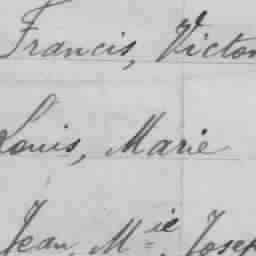 Francis, Victor
Louis, Marie
Jean, Mie Joseph